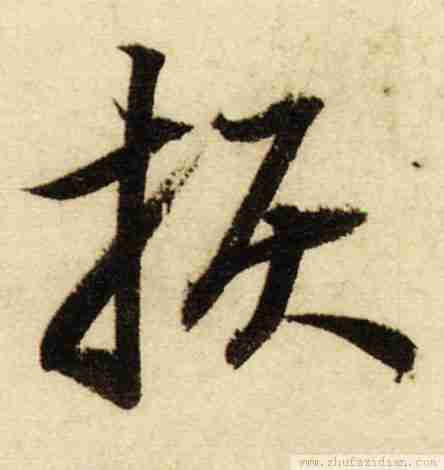 扳
www.shufazidian.com